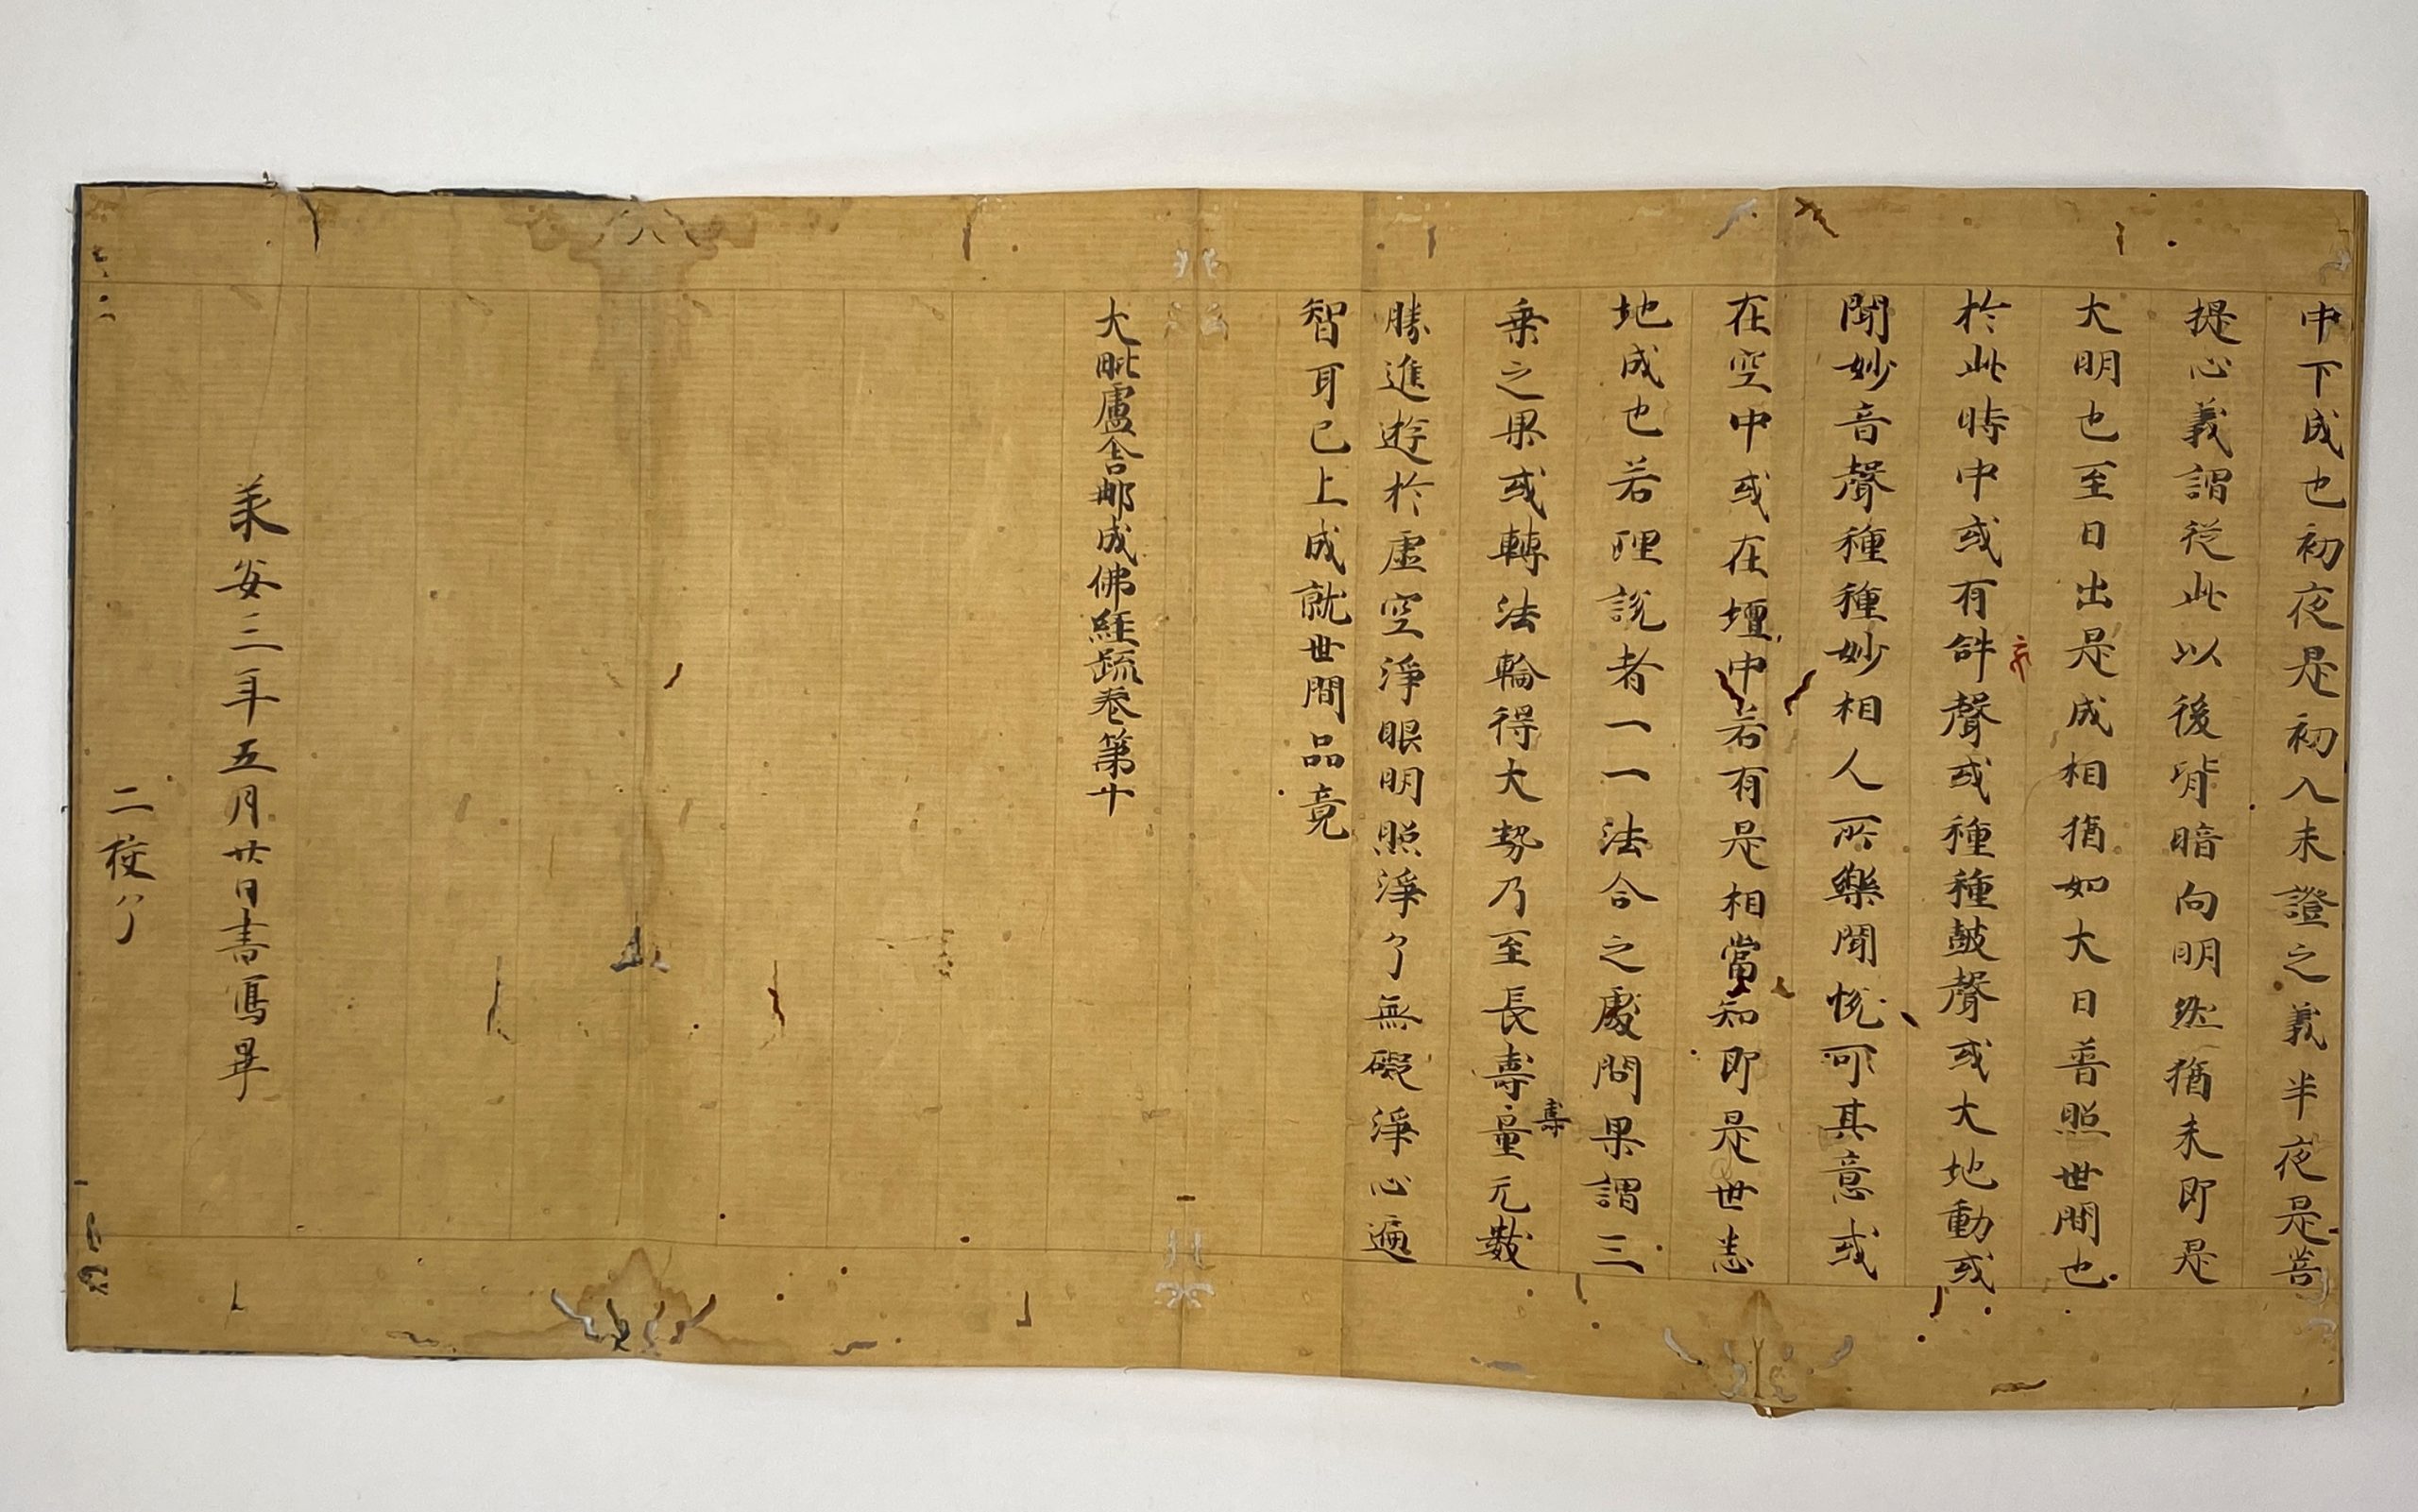 中下成也初夜是初入未證之義半夜是菩
提心義謂從此以後背暗向明然猶未即是
大明也至日出是成相猶如大日普照世間也
於此時中或有鈝聲或種種鼓聲或大地動或
聞妙音聲種種妙相人所樂聞悅可其意或
在空中或在壇中若有是相當知即是世悉
地成也若理說者一一法合之處問果謂三
乗之果或轉法輪得大勢乃至長壽童元數
壽
勝進遊於虛空淨眼明照淨了無礙淨心遍
智耳已上成就世間品竟
大毗盧舍那成佛經疏卷第十
美安三年五月廿日書寫畢
二校了